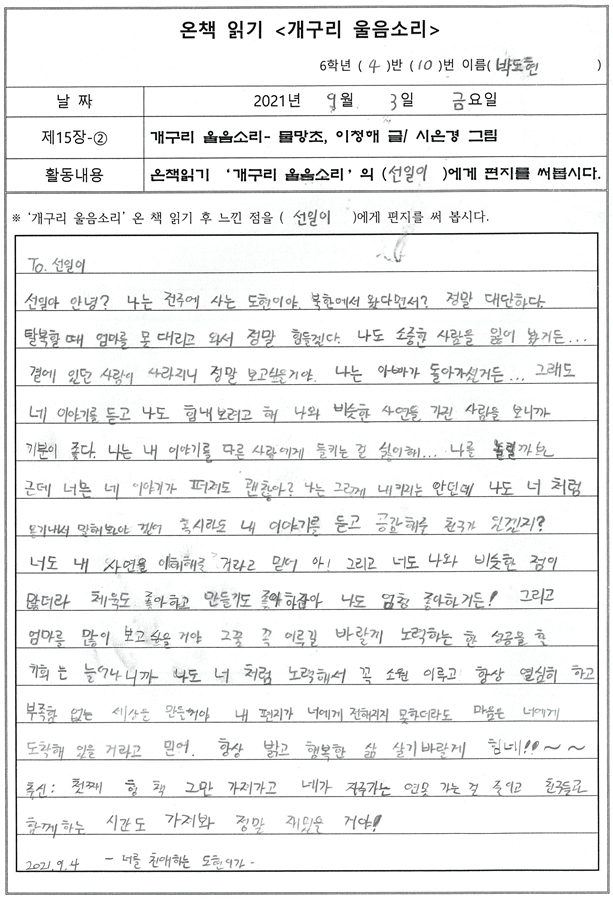 온책 읽기 <개구리 울음소리>
6학년 ( 4 )반 (10)번 이름( 박도현 )
날 짜 2021년 9월 3일 금요일
제15장-② 개구리 울음소리- 물망초, 이정해 글/ 시은경 그림
활동내용 온책읽기 ‘개구리 울음소리’ 의 (선일이 )에게 편지를 써봅시다.
※ ‘개구리 울음소리’ 온 책 읽기 후 느낀 점을 ( 선일이 )에게 편지를 써 봅시다.
To. 선일이
선일아 안녕? 나는 전주에 사는 도현이야. 북한에서 왔다면서? 정말 대단하다.
탈북할 때 엄마를 못 대리고 와서 정말 힘들겠다. 나도 소중한 사람을 잃어 봤거든...
곁에 있던 사람이 사라지니 정말 보고싶을거야. 나는 아빠가 돌아가셨거든... 그래도
네 이야기를 듣고 나도 힘내보려고 해 나와 비슷한 사연을 가진 사람을 보니까
기분이 좋다. 나는 내 이야기를 다른 사람에게 들키는 건 싫어해... 나를 놀릴까봐
근데 너는 네 이야기가 퍼져도 괜찮아? 나는 그렇게 내키지는 안던데 나도 너 처럼
용기내서 말해봐야 겠어 혹시라도 내 이야기를 듣고 공감해줄 친구가 있겠지?
너도 내 사연을 이해해줄 거라고 믿어 아! 그리고 너도 나와 비슷한 점이
많더라 체육도 좋아하고 만들기도 좋아하잖아 나도 엄청 좋아하거든! 그리고
엄마를 많이 보고싶을 거야 그꿈 꼭 이루길 바랄게 노력하는 한 성공을 할
기회는 늘어나니까 나도 너 처럼 노력해서 꼭 소원 이루고 항상 열심히 하고
부족함 없는 세상을 만들거야 내 편지가 너에게 전해지지 못하더라도 마음은 너에게
도착해 있을 거라고 믿어. 항상 밝고 행복한 삶 살기바랄게 힘내!! ~ ~
추신: 첫째 형 책 그만 가져가고 네가 자주가는 연못 가는 건 줄이고 친구들과
함께하는 시간도 가져봐 정말 재밌을 거야!
2021.9.4 - 너를 친애하는 도현이가 -